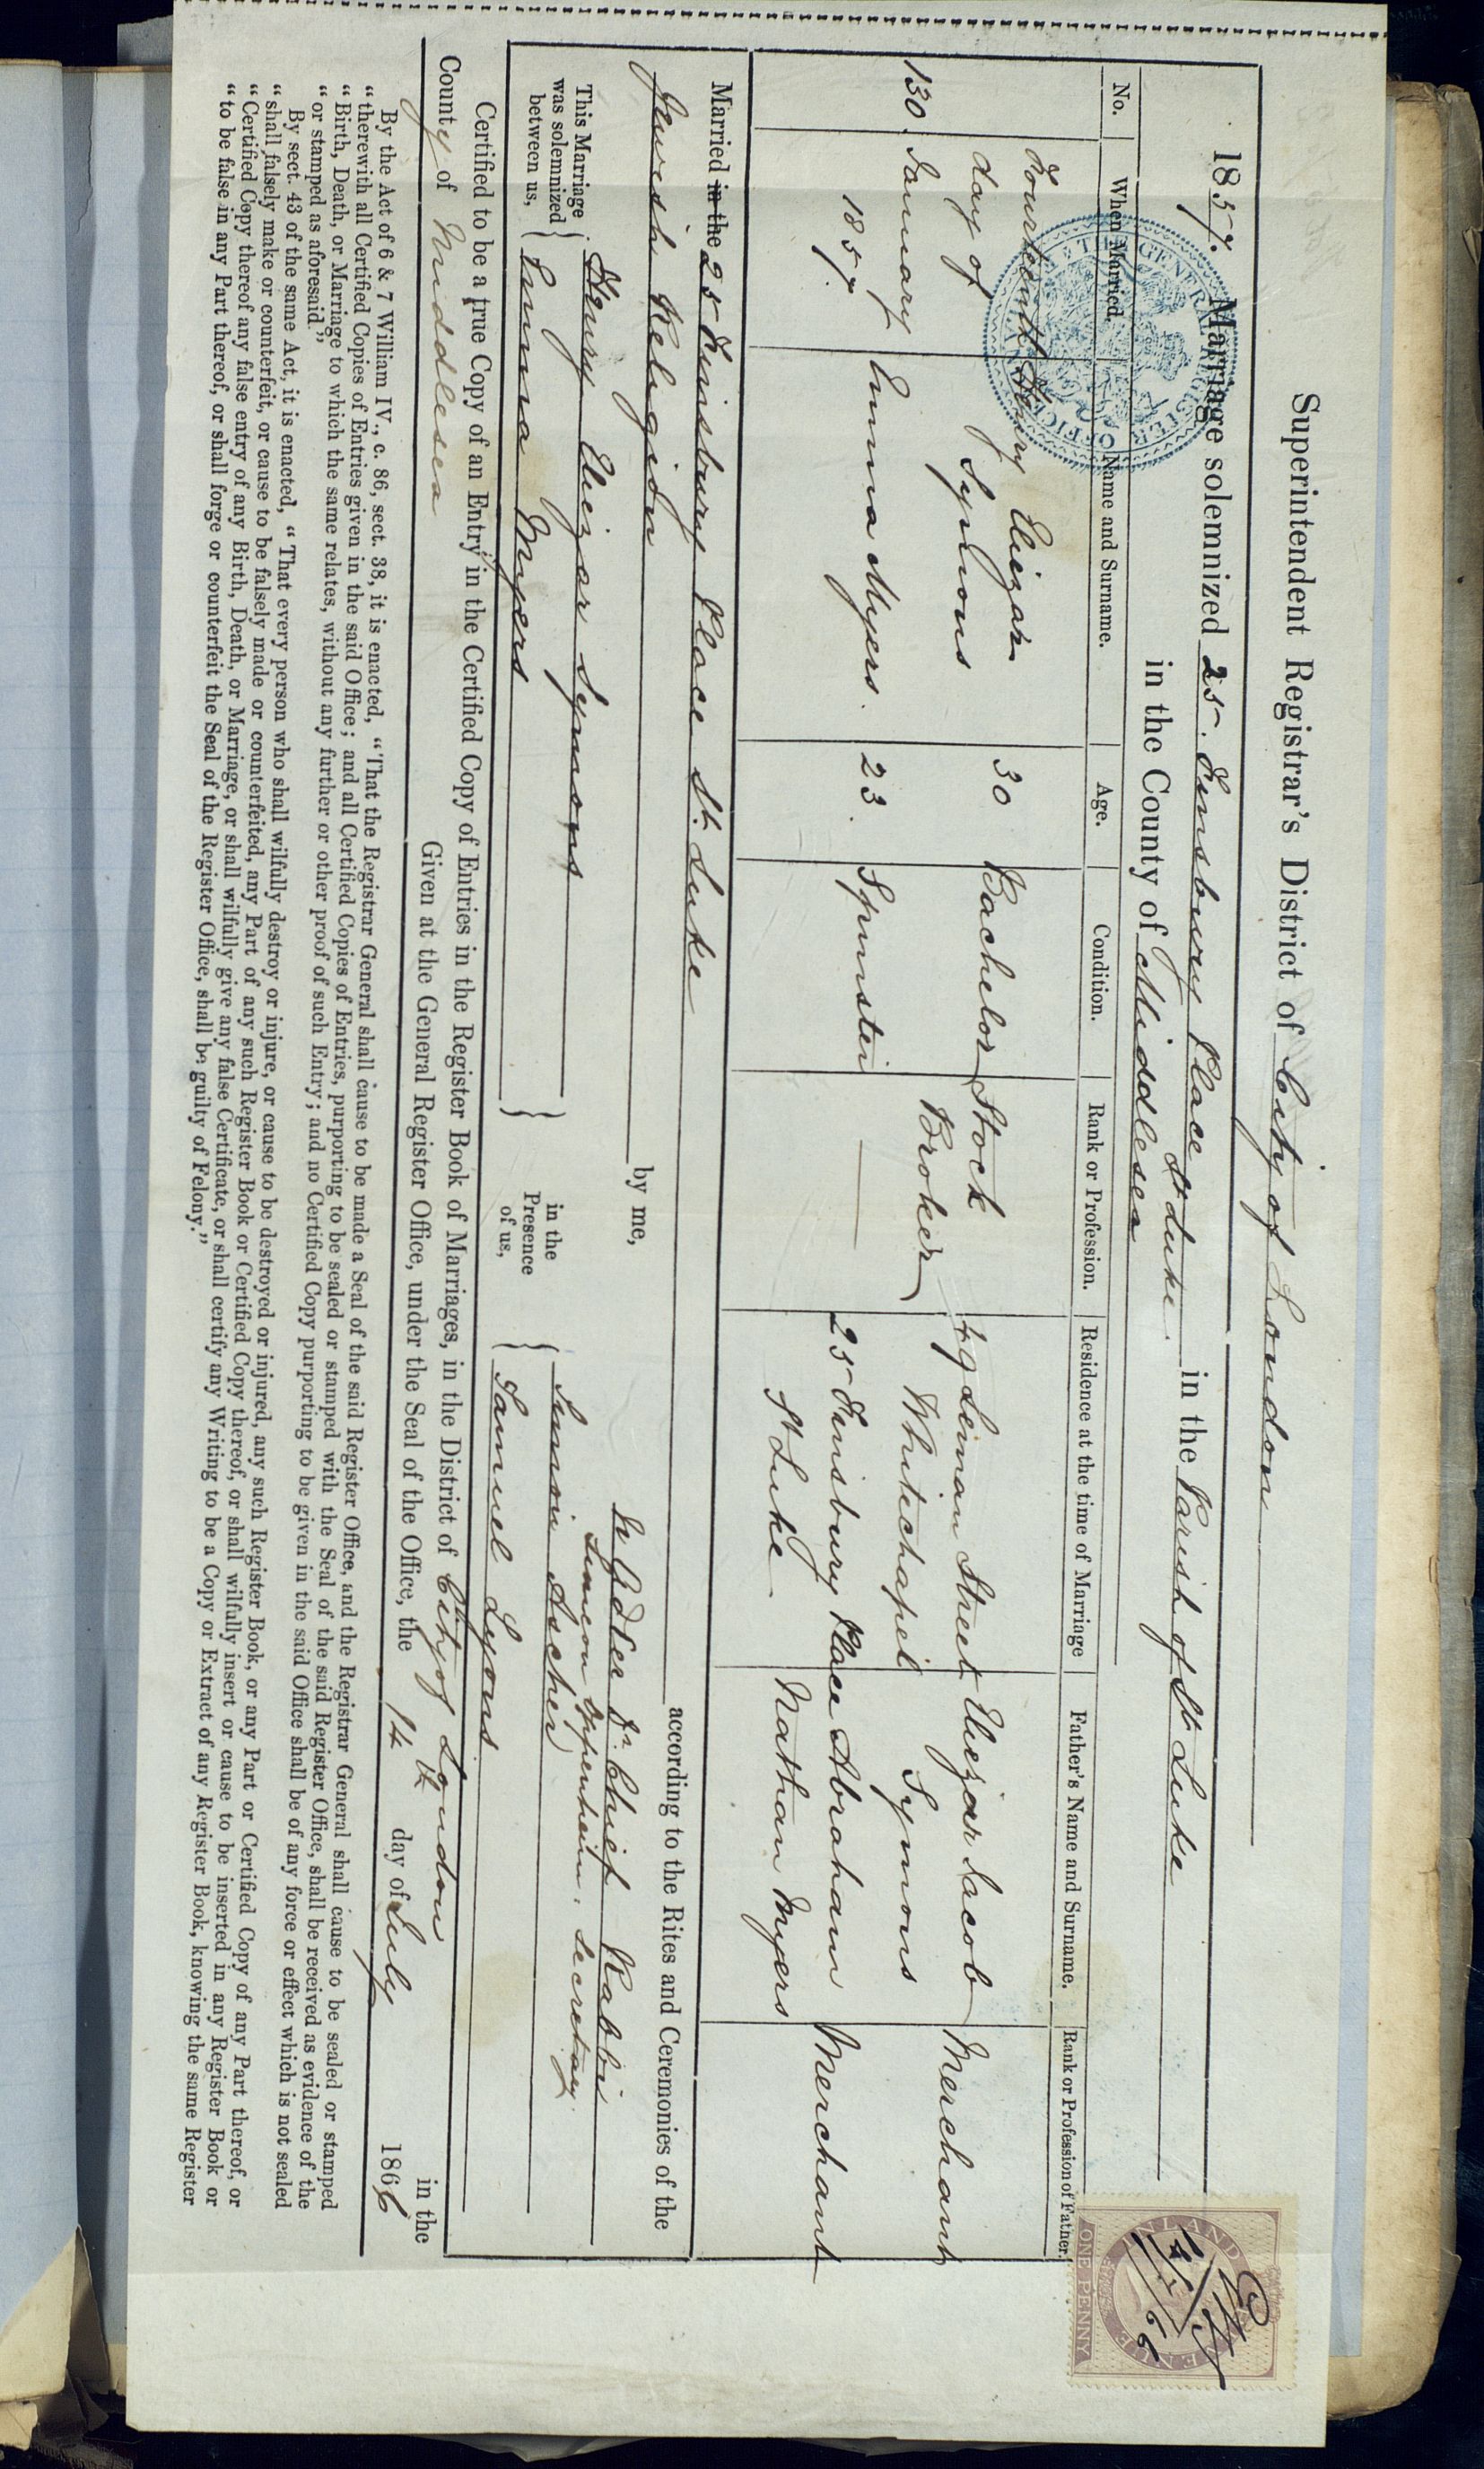 Superintendent Registrar's District of City of London
1857. Marriage solemnized 25. Finsbury Place St Luke in the Parish of St Luke
in the County of Middlesex
No. When Married. Name and Surname. Age. Condition. Rank or Profession. Residence at the time of Marriage Father's Name and Surname. Rank or Profession of Father.
130. Fourteenth day of January 1857. Henry Eliezar Symons 30 Bachelor Stock Broker 49 Leman Street Whitechapel Eliezar Jacob Symons Merchant
Emma Myers. 23. Spinster — 25 Finsbury Place St Luke Abraham Nathan Myers Merchant
Married in the 25 Finsbury Place St. Luke according to the Rites and Ceremonies of the
Jewish Religion by me, Dr. Chief Rabbi
Simeon Oppenheim. Secretary.
This Marriage was solemnized between us,
Henry Eliezar Symons
Emma Myers
in the Presence of us,
Simon Ascher
Samuel Lyons
Certified to be a true Copy of an Entry in the Certified Copy of Entries in the Register Book of Marriages, in the District of City of London in the
County of Middlesex Given at the General Register Office, under the Seal of the Office, the 14th day of July 1866
By the Act of 6 & 7 William IV., c. 86, sect. 38, it is enacted, "That the Registrar General shall cause to be made a Seal of the said Register Office, and the Registrar General shall cause to be sealed or stamped
" therewith all Certified Copies of Entries given in the said Office; and all Certified Copies of Entries, purporting to be sealed or stamped with the Seal of the said Register Office, shall be received as evidence of the
" Birth, Death, or Marriage to which the same relates, without any further or other proof of such Entry; and no Certified Copy purporting to be given in the said Office shall be of any force or effect which is not sealed
" or stamped as aforesaid."
By sect. 43 of the same Act, it is enacted, " That every person who shall wilfully destroy or injure, or cause to be destroyed or injured, any such Register Book, or any Part or Certified Copy of any Part thereof, or
" shall falsely make or counterfeit, or cause to be falsely made or counterfeited, any Part of any such Register Book or Certified Copy thereof, or shall wilfully insert or cause to be inserted in any Register Book or
" Certified Copy thereof any false entry of any Birth, Death, or Marriage, or shall wilfully give any false Certificate, or shall certify any Writing to be a Copy or Extract of any Register Book, knowing the same Register
" to be false in any Part thereof, or shall forge or counterfeit the Seal of the Register Office, shall be guilty of Felony."
INLAND REVENUE
14/7/66
ONE PENNY
GENERAL REGISTER OFFICE